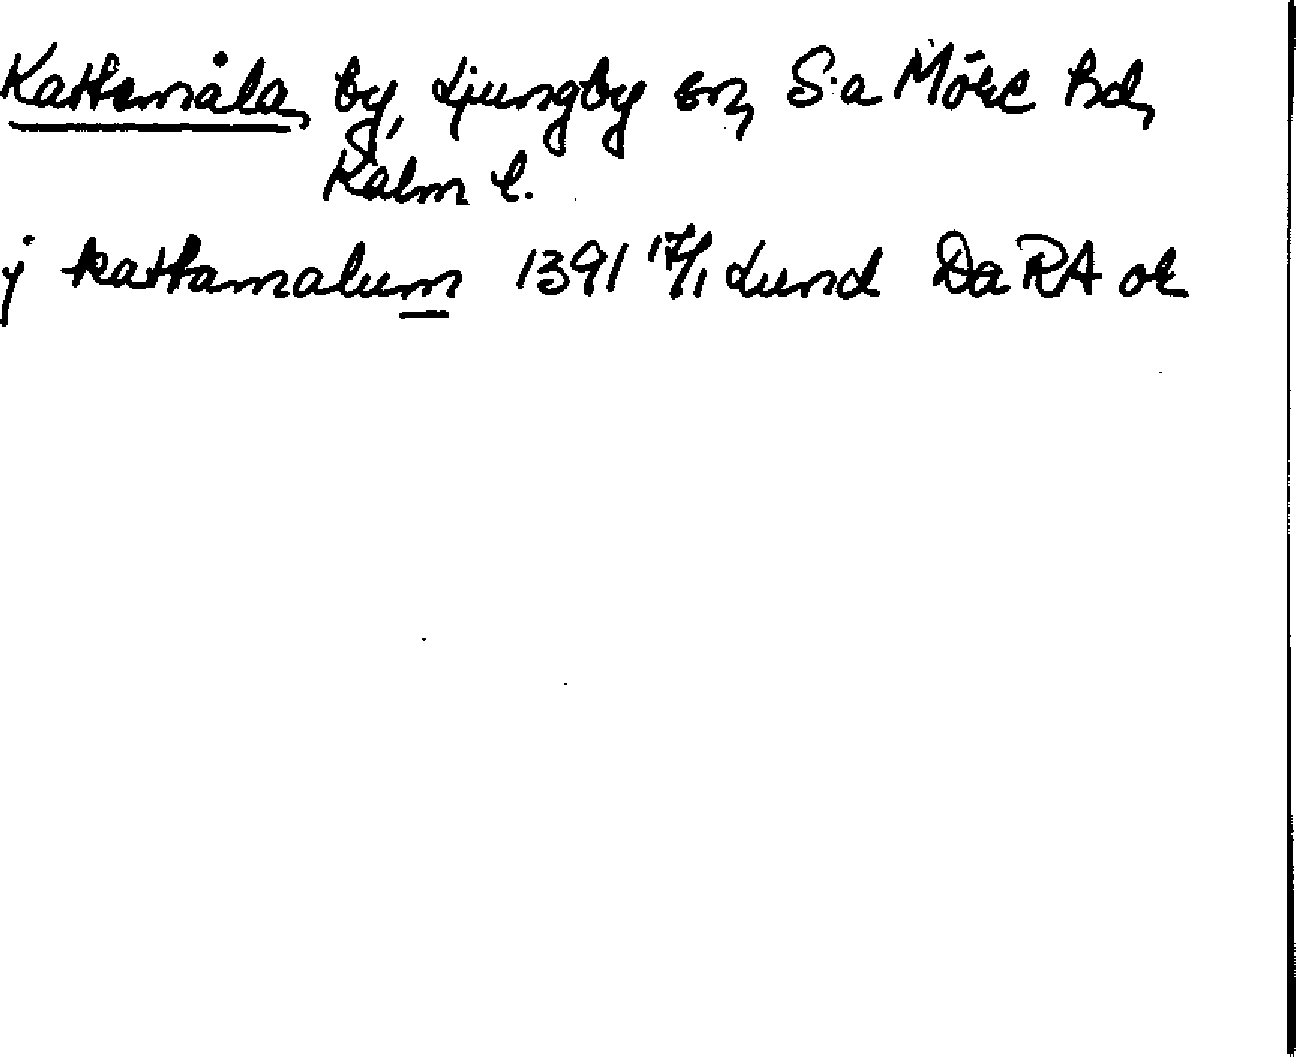 Kattemåla, by, Ljungby sn, S:a Möre hd,
Kalm l.
j kattamalum 1391 17/1 Lund DaRA or